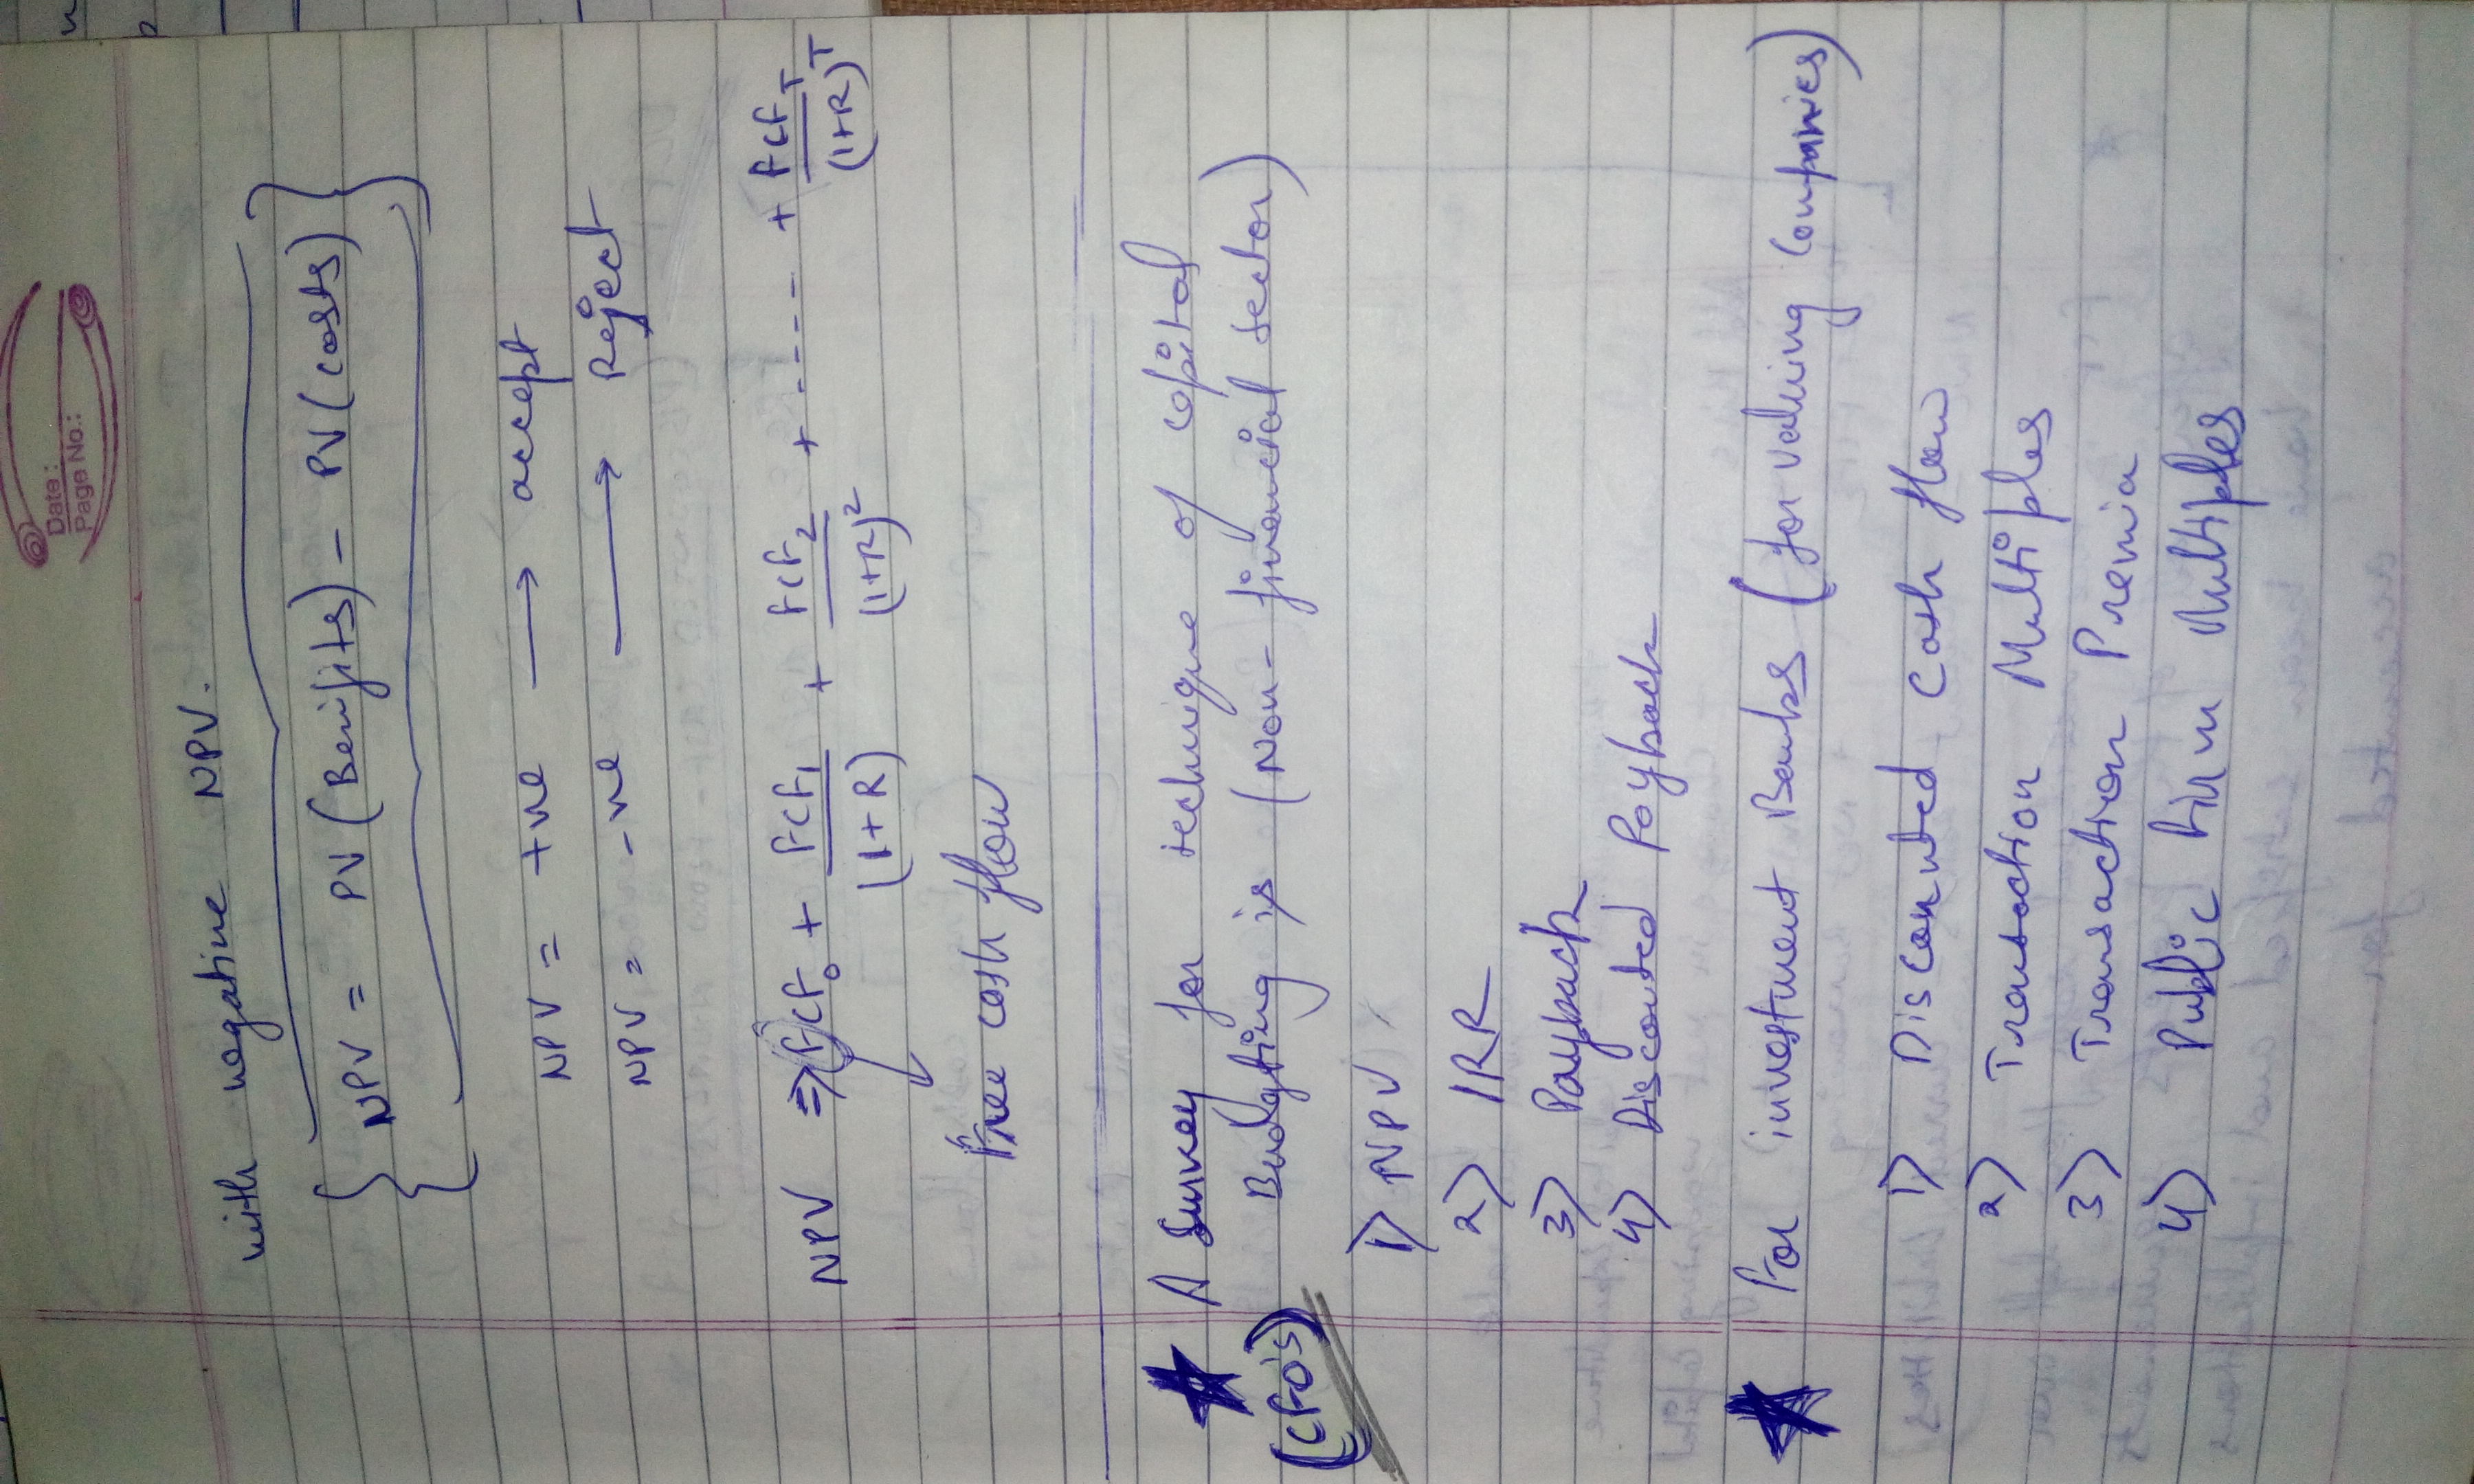 Date :
Page No.:
with negative NPV.
NPV = PV (Benifits) - PV (costs)
NPV = +ve → accept
NPV = -ve → Reject
NPV ⇒ FCF₀ + FCF₁/(1+R) + FCF₂/(1+R)² + ---- + FCF_T/(1+R)^T
Free cash flow
A Survey for technique of capital
(CFO's) Budgeting is (Non-financial sector)
1) NPV
2) IRR
3) Payback
4) Discounted Payback
For investment Banks (for valuing Companies)
1) Discounted Cash flow
2) Transaction Multiples
3) Transaction Premia
4) Public Firm Multiples